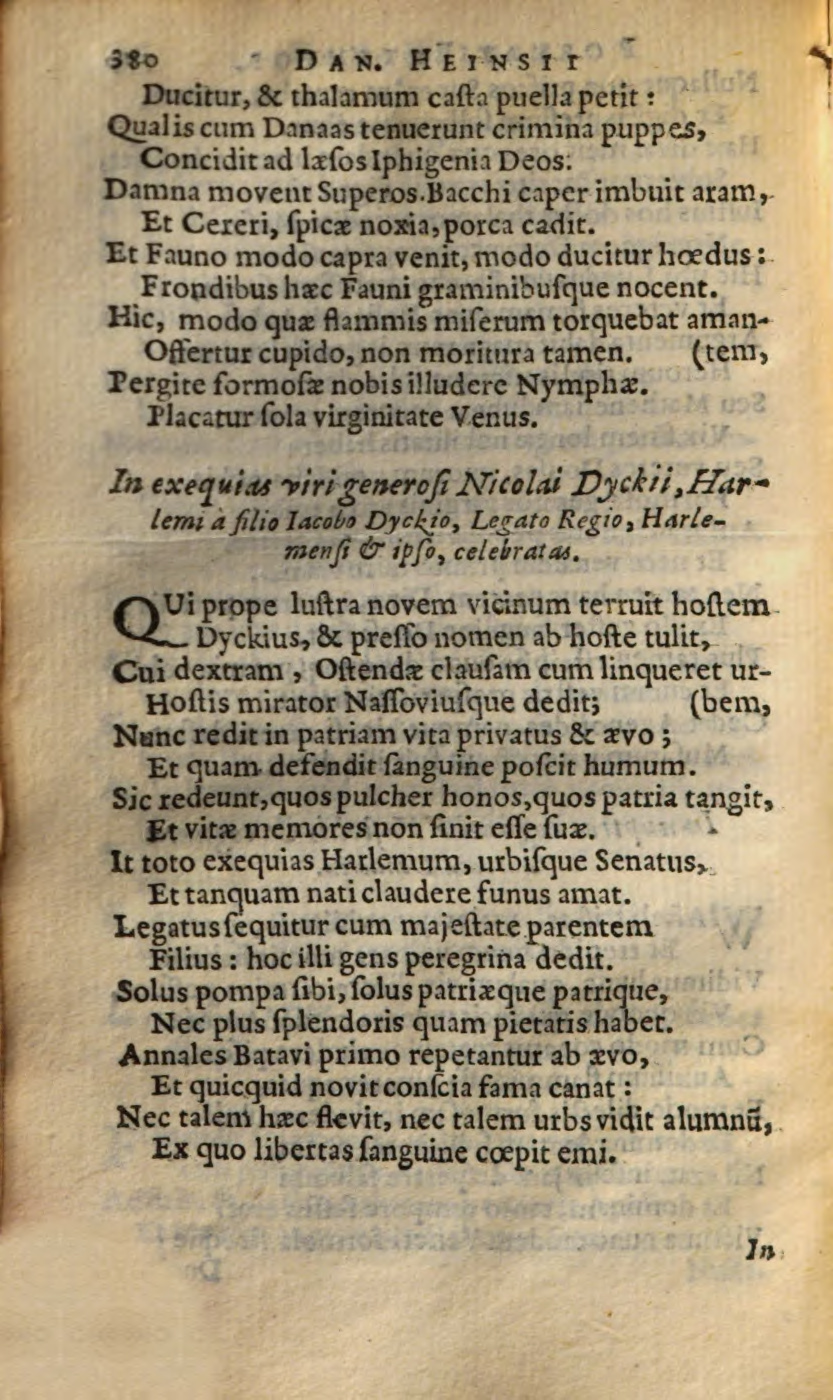 380 DAN. HEINSII
Ducitur, & thalamum caſta puella petit :
Qualis cum Danaas tenuerunt crimina puppes,
Concidit ad læſos Iphigenia Deos:
Damna movent Superos. Bacchi caper imbuit aram,
Et Cereri, ſpicæ noxia, porca cadit.
Et Fauno modo capra venit, modo ducitur hœdus :
Frondibus hæc Fauni graminibuſque nocent.
Hic, modo quæ flammis miſerum torquebat aman-
Offertur cupido, non moritura tamen. (tem,
Pergite formoſæ nobis illudere Nymphæ.
Placatur ſola virginitate Venus.
In exequias viri generoſi Nicolai Dyckii, Har-
lemi à filio Iacobo Dyckio, Legato Regio, Harle-
menſi & ipſo, celebratas.
QUi prope luſtra novem vicinum terruit hoſtem
Dyckius, & preſſo nomen ab hoſte tulit,
Cui dextram , Oſtendæ clauſam cum linqueret ur-
Hoſtis mirator Naſſoviuſque dedit; (bem,
Nunc redit in patriam vita privatus & ævo ;
Et quam defendit ſanguine poſcit humum.
Sic redeunt, quos pulcher honos, quos patria tangit,
Et vitæ memores non ſinit eſſe ſuæ.
It toto exequias Harlemum, urbiſque Senatus,
Et tanquam nati claudere funus amat.
Legatus ſequitur cum majeſtate parentem
Filius : hoc illi gens peregrina dedit.
Solus pompa ſibi, ſolus patriæque patrique,
Nec plus ſplendoris quam pietatis habet.
Annales Batavi primo repetantur ab ævo,
Et quicquid novit conſcia fama canat :
Nec talem hæc flevit, nec talem urbs vidit alumnũ,
Ex quo libertas ſanguine cœpit emi.
In